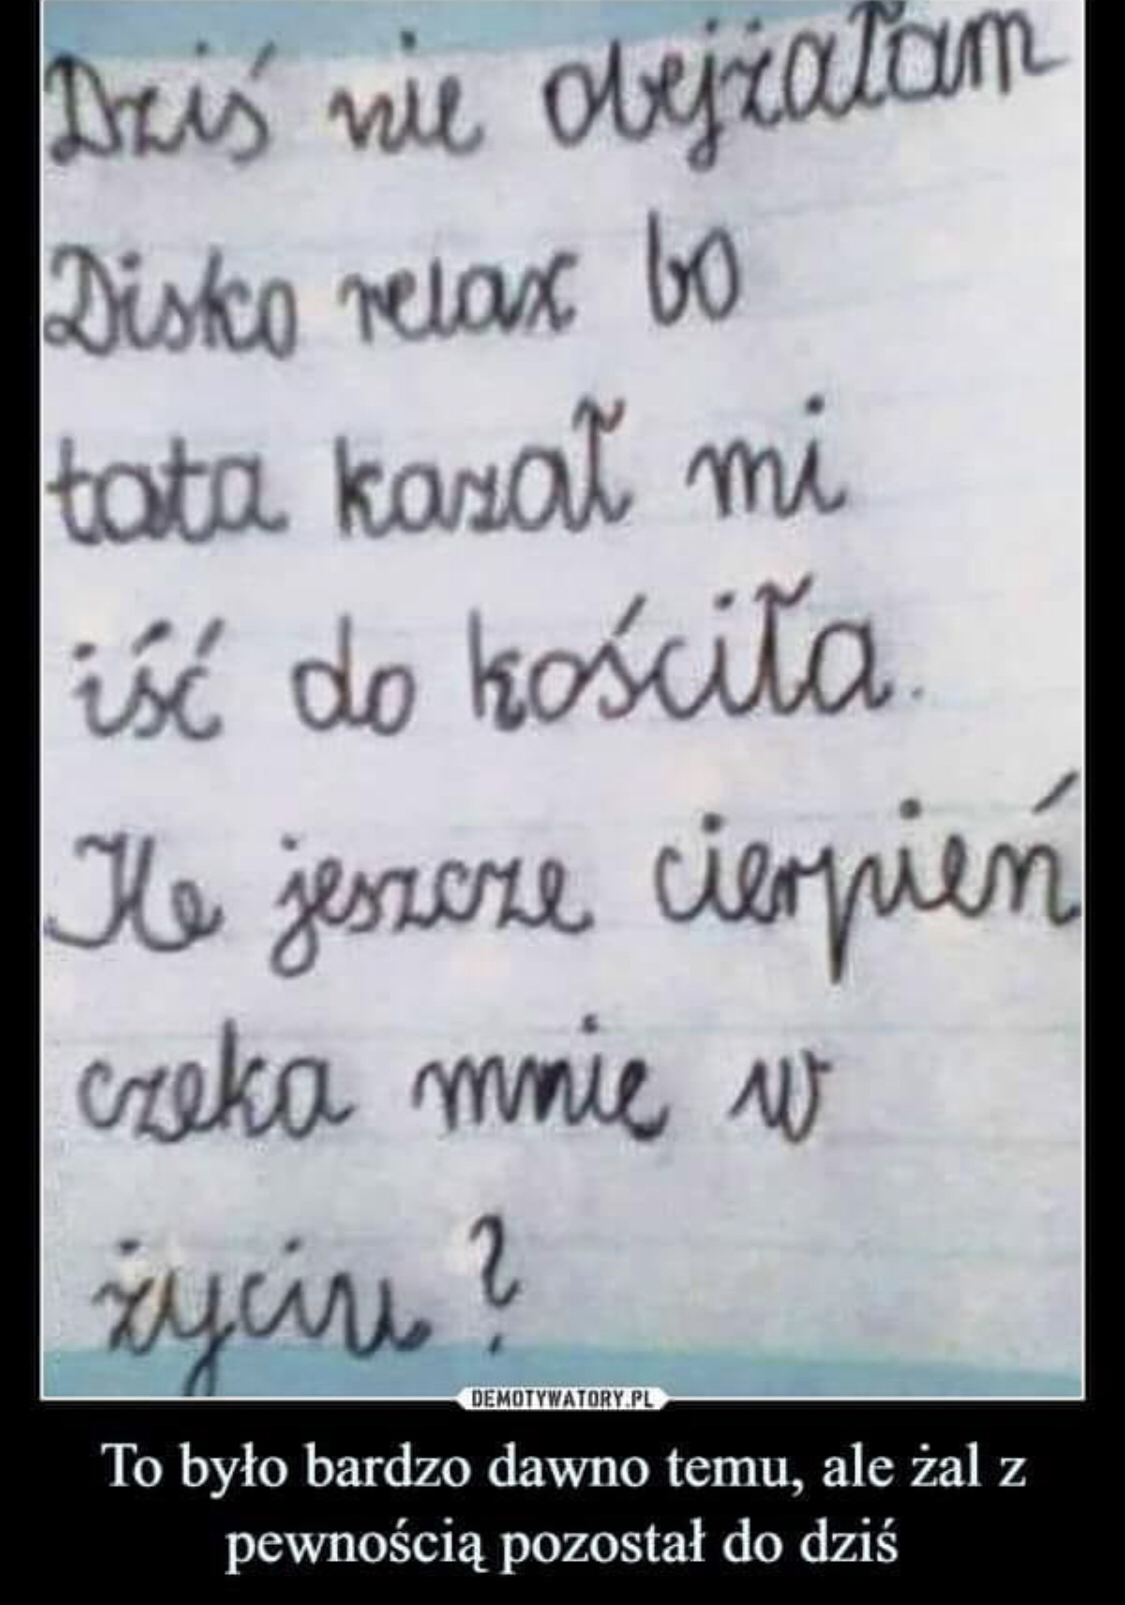 Dziś nie obejżałam
Disko relax bo
tata kazał mi
iść do kościła.
Ile jeszcze cierpień
czeka mnie w
życiu?
DEMOTYWATORY.PL
To było bardzo dawno temu, ale żal z
pewnością pozostał do dziś